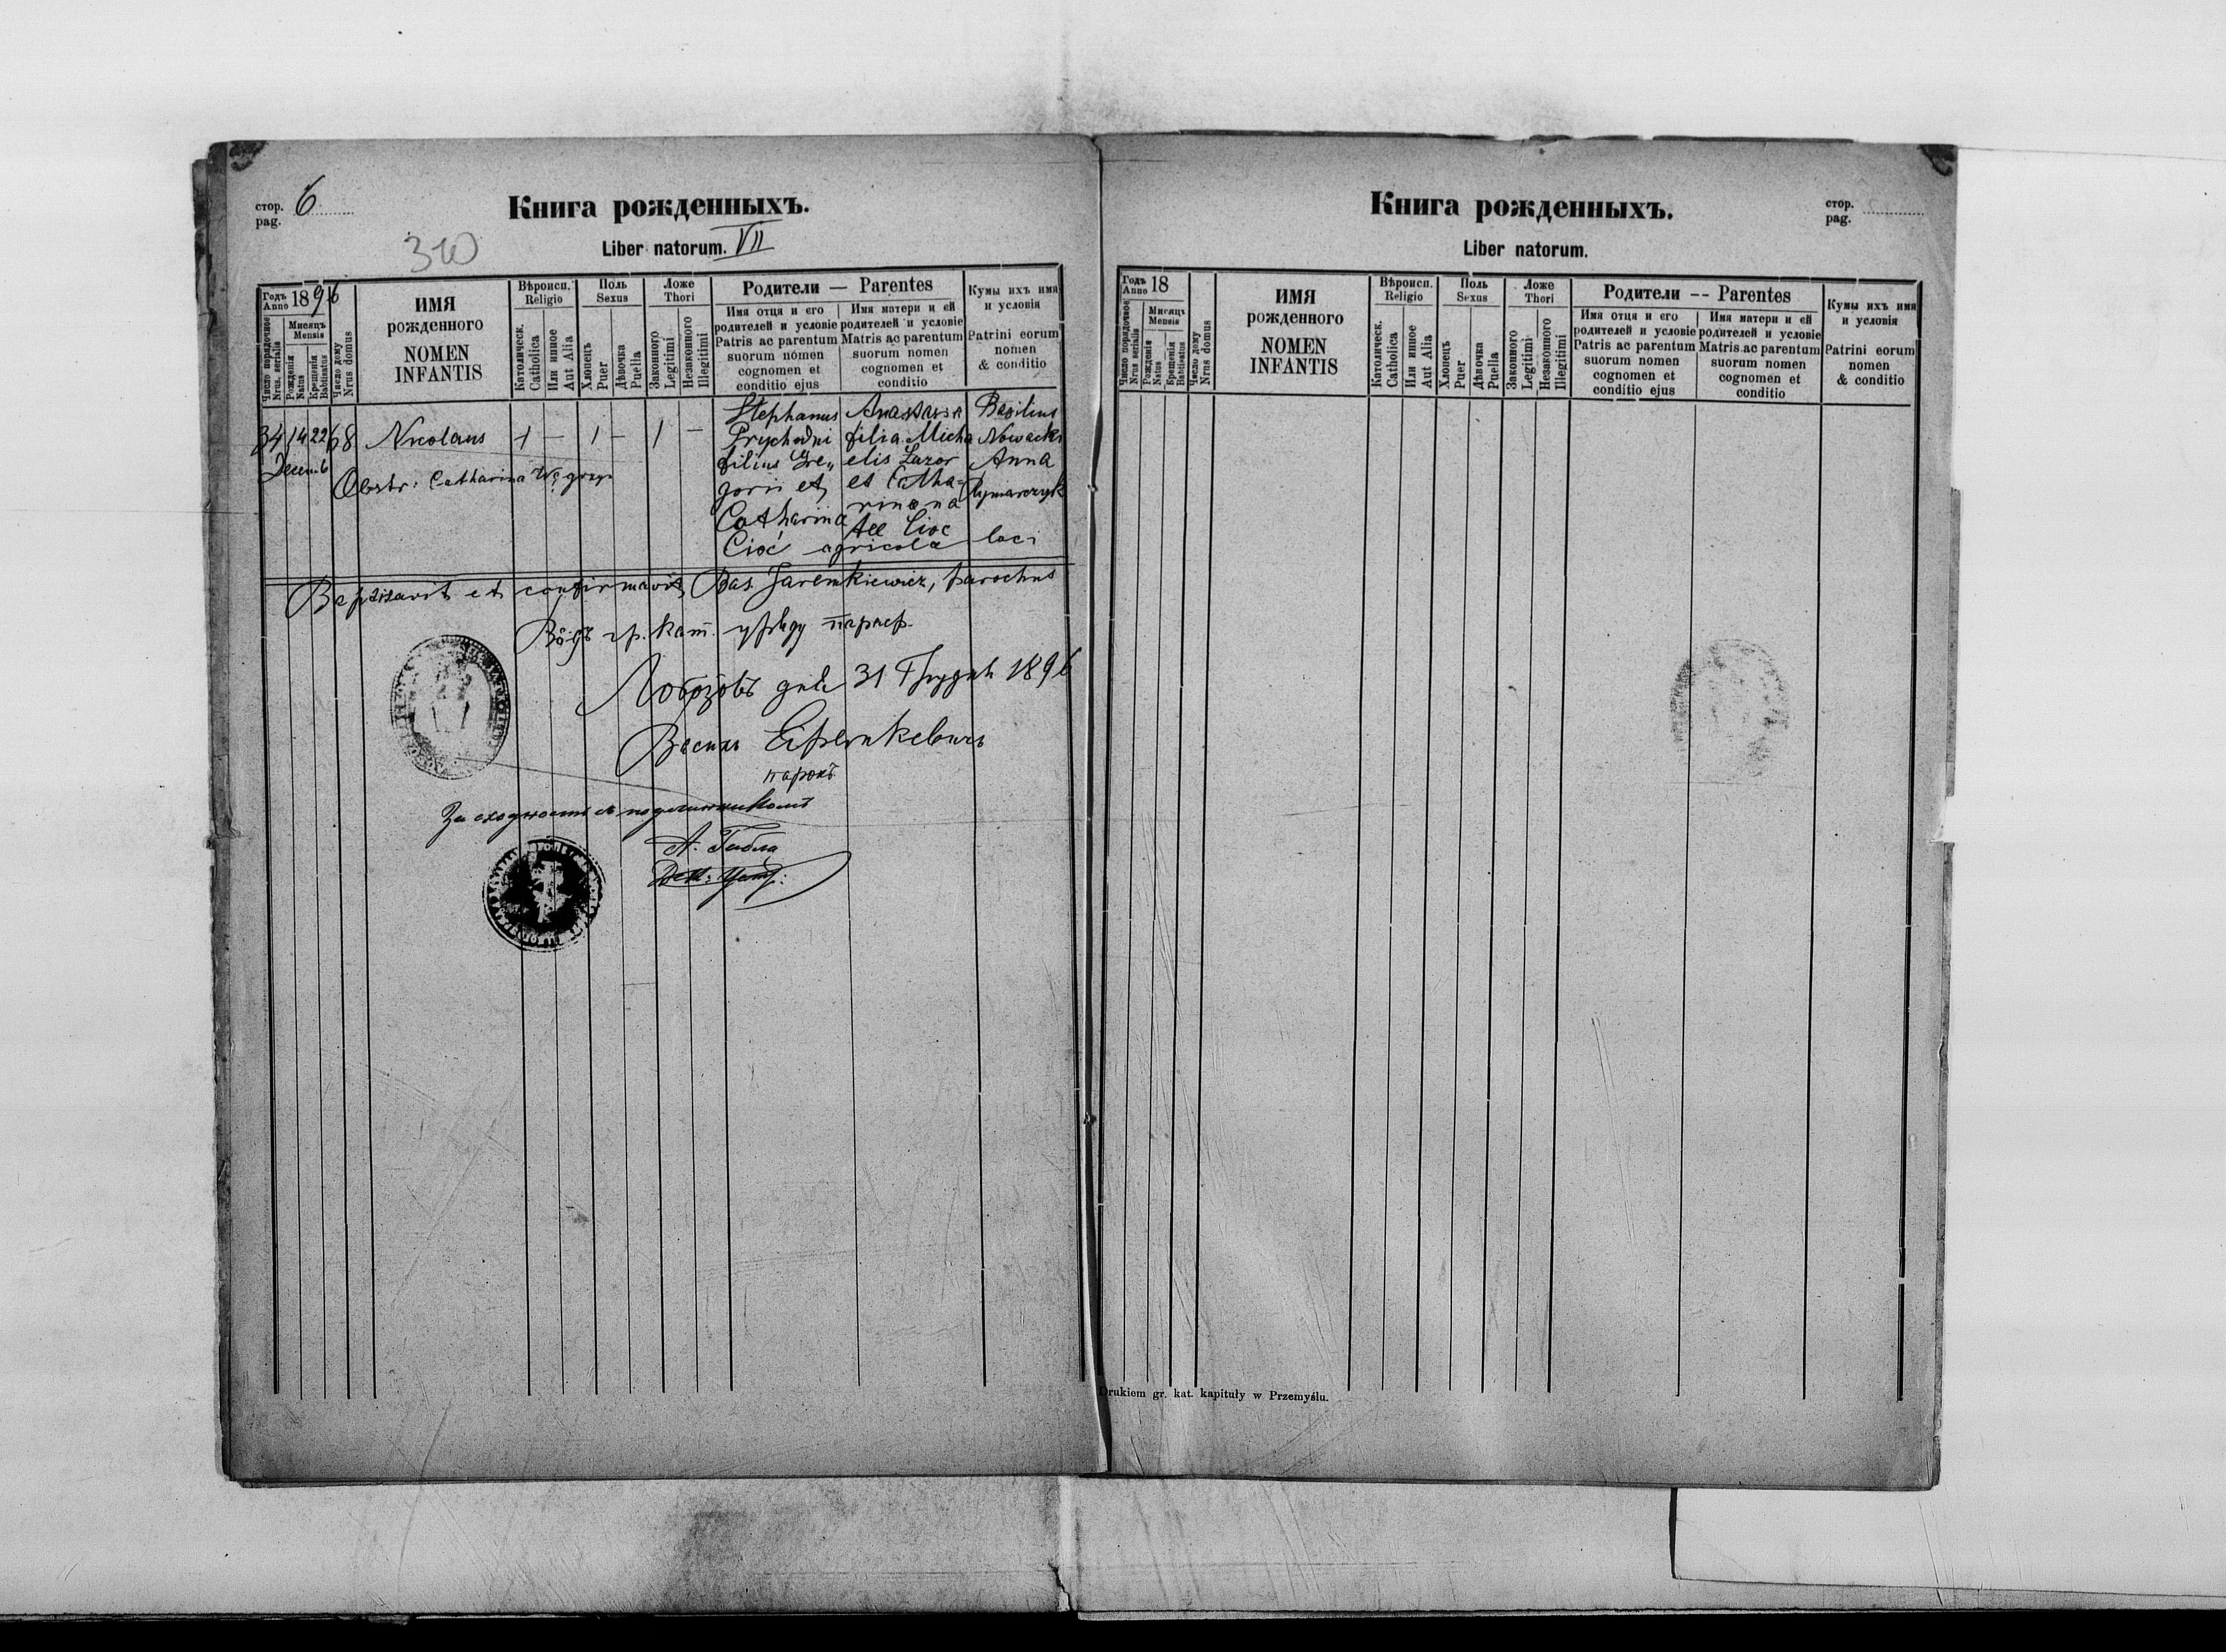 стор. 6
pag.
Книга рожденныхъ.
310
Liber natorum. VII
Годъ Anno 1896
Мисяцъ
Mensis
Число порядочное
Nrus. serialis
Рожденія
Natus
Крещенія
Babtisatus
Число дому
Nrus domus
ИМЯ
рожденного
NOMEN
INFANTIS
Вѣроисп.
Religio
Католическ.
Catholica
Или инное
Aut Alia
Поль
Sexus
Хлопецъ
Puer
Дѣвочка
Puella
Ложе
Thori
Законного
Legitimi
Незаконного
Illegitimi
Родители — Parentes
Имя отця и его
родителей и условіе
Patris ac parentum
suorum nomen
cognomen et
conditio ejus
Имя матери и ей
родителей и условіе
Matris ac parentum
suorum nomen
cognomen et
conditio
Кумы ихъ имя
и условія
Patrini eorum
nomen
& conditio
34 14 22 68 Nicolaus 1 — 1 — 1 —
Decemb
Obstr: Catharina Węgrzyn
Stephanus
Prychodni
filius Gre„
gorii et
Catharina
Cioć agricola
Anastasia
filia Micha
elis Lazor
et Catha=
rina na
tae Cioc
Basilius
Nowacki
Anna
Rymarczyk
loci
Baptisavit et confirmavit Bas. Jaremkiewicz, parochus
Вôдъ гр. кат. уряду парох.
Лобозôвъ дня 31 Грудня 1896
Василь Яремкевичъ
парохъ
За сходность съ подлинникомъ
стор.
pag.
Книга рожденныхъ.
Liber natorum.
Годъ Anno 18
Мисяцъ
Mensis
Число порядочное
Nrus serialis
Рожденія
Natus
Крещенія
Babtisatus
Число дому
Nrus domus
ИМЯ
рожденного
NOMEN
INFANTIS
Вѣроисп.
Religio
Католическ.
Catholica
Или инное
Aut Alia
Поль
Sexus
Хлопецъ
Puer
Дѣвочка
Puella
Ложе
Thori
Законного
Legitimi
Незаконного
Illegitimi
Родители -- Parentes
Имя отця и его
родителей и условіе
Patris ac parentum
suorum nomen
cognomen et
conditio ejus
Имя матери и ей
родителей и условіе
Matris ac parentum
suorum nomen
cognomen et
conditio
Кумы ихъ имя
и условія
Patrini eorum
nomen
& conditio
Drukiem gr. kat. kapituły w Przemyślu.